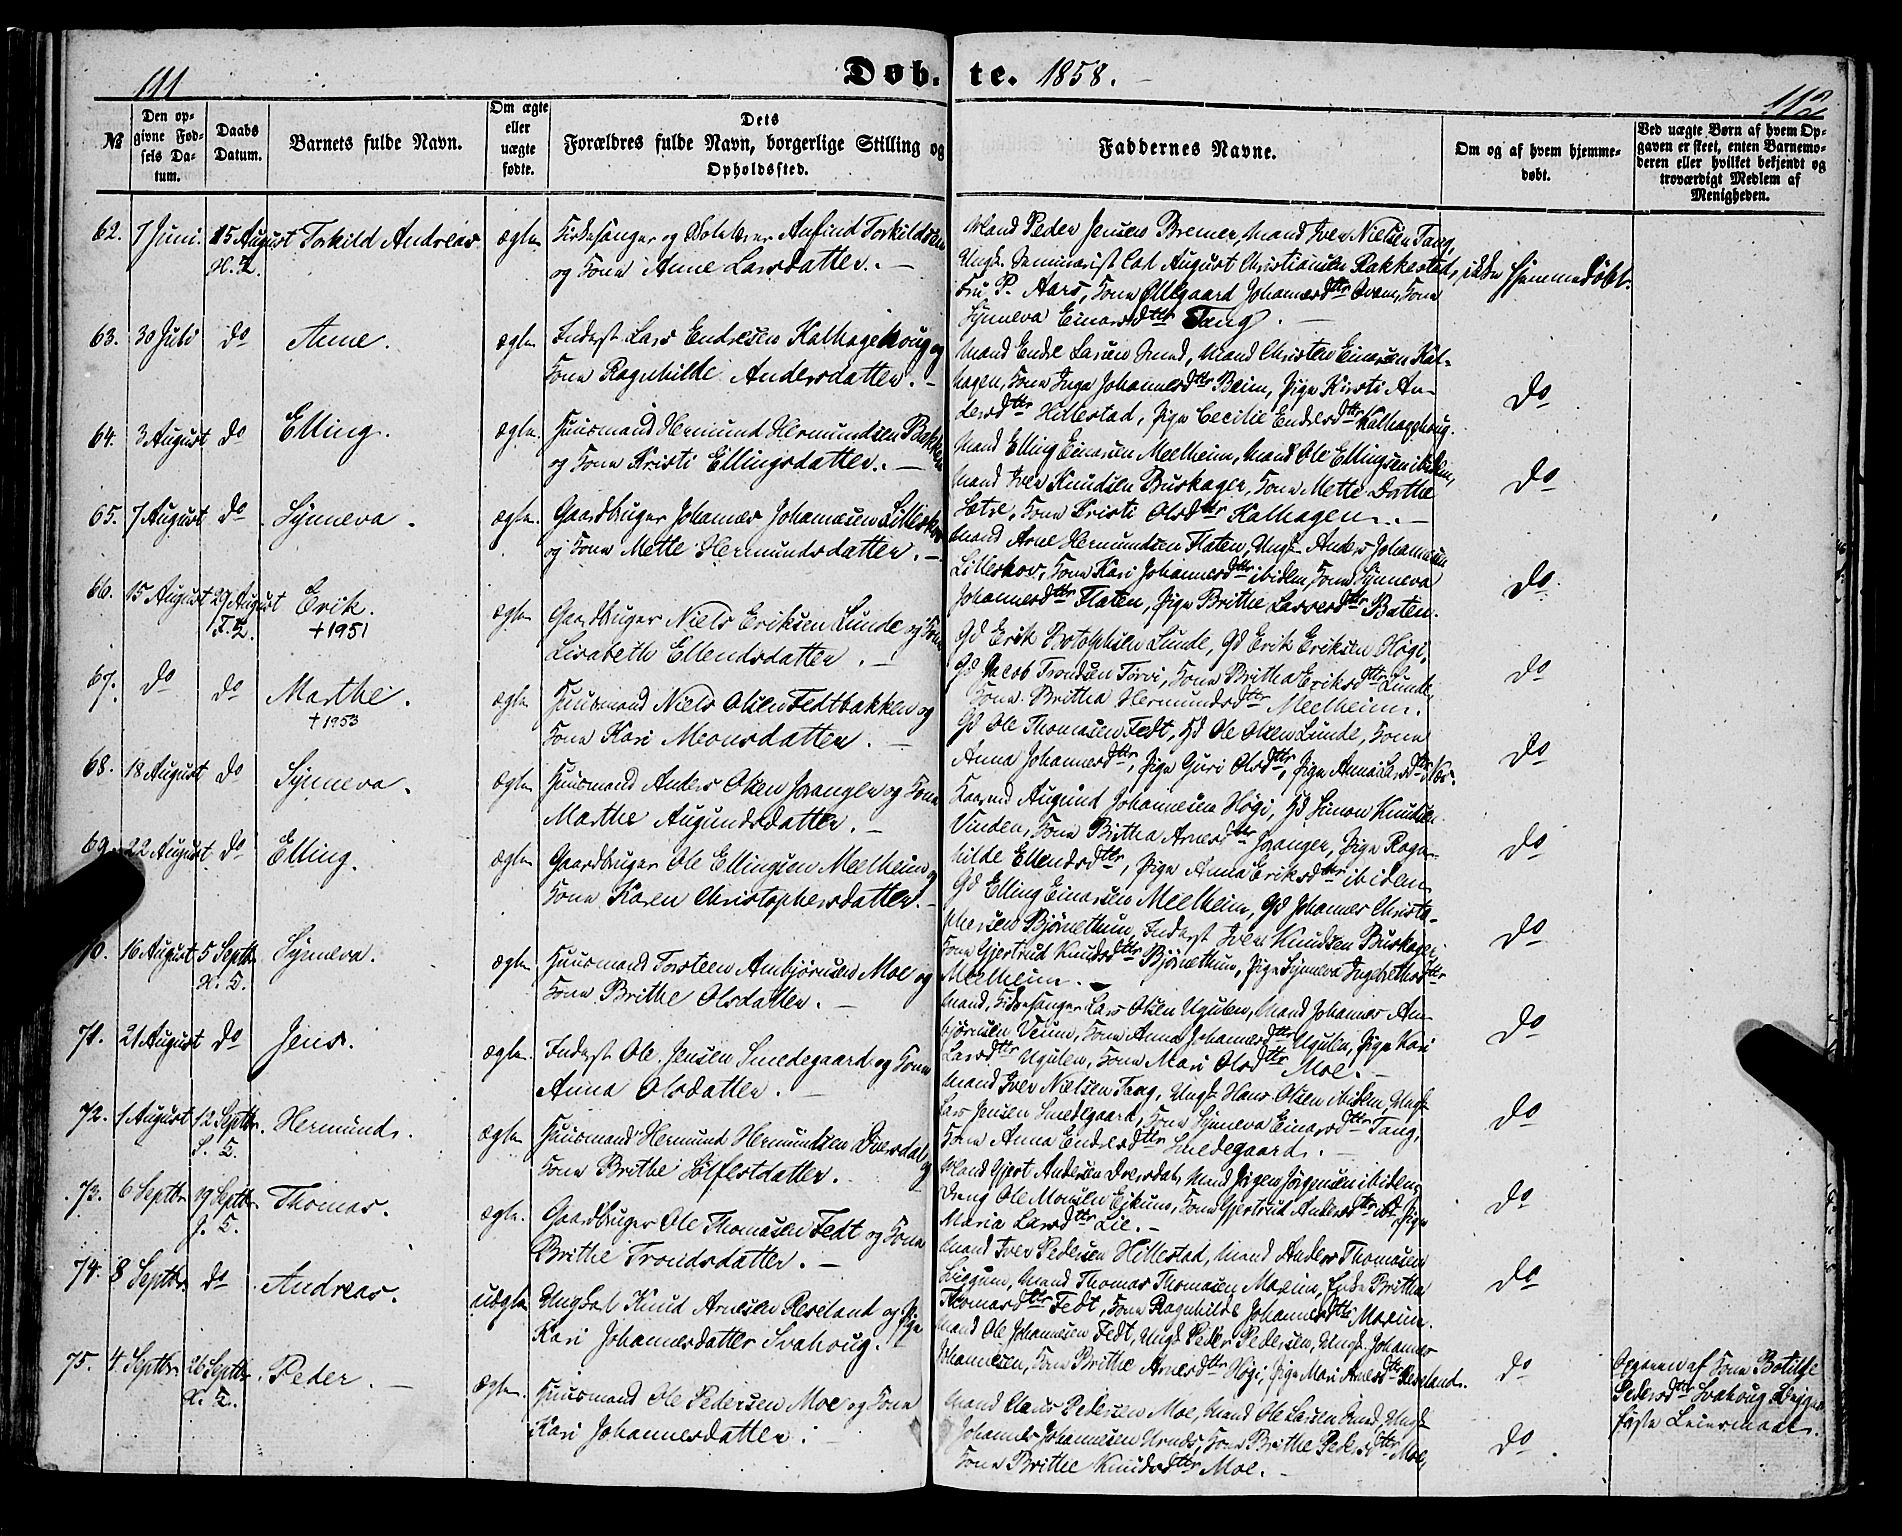 111
Døb. te. 1858.
112
№
Den op-
givne Fød-
sels Da-
tum.
Daabs
Datum.
Barnets fulde Navn.
Om ægte
eller
uægte
fødte.
Dets
Forældres fulde Navn, borgerlige Stilling og
Opholdssted.
Faddernes Navne.
Om og af hvem hjemme-
døbt.
Ved uægte Børn af hvem Op-
gaven er skeet, enten Barnemo-
deren eller hvilket bekjendt og
troværdigt Medlem af
Menigheden.
62. 7 Juni. 15 August Torkild Andreas. ægte Kirkesanger og Anfind Torkildsen
og Kone Anne Larsdatter. —
Mand Peder Jensen Bremer, Mand Iver Nielsen Tang,
Ungk. Seminarist Carl August Christiansen Rakkestad,
Fru P. Aars, Kone Ollegaard Johannesdttr Kone
Synneva Einarsdttr Tang. —
ikke hjemmedøbt.
63. 30 Juli do Anne. ægte Inderst Lars Endresen Kalhagehoug og
Kone Ragnhilde Andersdatter. —
Mand Endre Larsen Mand Christen Einarsen Kal-
hagen, Kone Inga Johannesdttr Beim, Pige Kirsti An-
dersdttr Hillestad, Pige Cecilie Endresdttr Kalhagehoug.
do
64. 3 August do Elling. ægte. Huusmand Hermund Hermundsen Bakken
og Kone Kristi Ellingsdatter. —
Mand Elling Einarsen Meelheim, Mand Ole Ellingsen ibidem,
Mand Iver Knudsen Buskagen, Kone Mette Dorthe
Sætre, Kone Kristi Olsdttr Kalhagen. —
do
65. 7 August do Synneva. ægte. Gaardbruger Johannes Johannesen Lilleskov
og Kone Mette Hermundsdatter. —
Mand Arne Hermundsen Flaten, Ungk. Anders Johannesen
Lilleskov, Kone Kari Johannesdttr ibidem, Kone Synneva
Johannesdttr Flaten, Pige Brithe Lassesdttr Baten.
do.
66. 15 August 27 August Erik. ægte Gaardbruger Niels Eriksen Lunde og Kone
+1951
Lisabeth Ellendsdatter. —
Gd Erik Botolphsen Lunde, Gd Erik Eriksen Høgi,
Gd Jacob Trondsen Tørvi, Kone Britha Eriksdttr Lunde,
Kone Britha Hermundsdttr Meelheim.
do
67. do do Marthe. ægte Huusmand Niels Olsen Fedtbakken og
+1953
Kone Kari Monsdatter. —
Gd Ole Thomasen Fedt, Gd Ole Olsen Lunde, Kone
Anna Johannesdttr, Pige Guri Olsdttr, Pige Anna Larsdttr
do
68. 18 August do Synneva. ægte Huusmand Anders Olsen Hvangen og Kone
Marthe Augundsdatter. —
Augund Johannesen Høgi, Gd Simon Knudsen
Vinden, Kone Britha Arnesdttr Hvangen, Pige Ragn-
hilde Ellendsdttr, Pige Anna Eriksdttr ibidem
do
69. 22 August. do Elling. ægte Gaardbruger Ole Ellingsen Meelheim og
Kone Karen Christophersdatter. —
Gd Elling Einarsen Meelheim, Gd Johannes Christo-
phersen Bjørnethun, Inderst Iver Knudsen Buskagen,
Kone Gjertrud Knudsdttr Bjørnethun, Pige Synneva Ingebrethsdttr
Meelheim. —
do
70. 16 August 5 Septbr. Synneva. ægte Huusmand Torsteen Ambjørnsen Moe og
Kone Brithe Olsdatter. —
Mand, Kirkesanger Lars Olsen Ugulen, Mand Johannes Am-
bjørnsen Veum, Kone Anna Johannesdttr Ugulen, Pige Kari
Larsdttr Ugulen, Kone Mari Olsdttr Moe. —
do
71. 21 August do Jens. ægte. Inderst Ole Jensen Smedegaard og Kone
Anna Olsdatter. —
Mand Iver Nielsen Tang, Ungk. Hans Olsen ibidem, Ungk.
Lars Jensen Smedegaard, Kone Synneva Einarsdttr Tang,
Kone Anna Endresdttr Smedegaard. —
do
72. 1 August 12 Septbr. Hermund. ægte Huusmand Hermund Hermundsen Dversdal og
Kone Brithe Sølfestdatter. —
Mand Gjert Andersen Dversdal, Mand Jørgen Jørgensen ibidem,
Dreng Ole Monsen Eikum, Kone Gjertrud Andersdttr ibd, Pige
Maria Larsdttr Lie. —
do
73. 6 Septbr 19 Septbr. Thomas. ægte. Gaardbruger Ole Thomasen Fedt og Kone
Brithe Trondsdatter. —
Mand Iver Pedersen Hillestad, Mand Anders Thomasen
Liggum, Mand Thomas Thomasen Morum, Enke Britha
Thomasdttr Fedt, Kone Ragnhilde Johannesdttr Morum.
do
74. 8 Septbr. do Andreas. uægte Ungkal Knud Arnesen Reseland og Pige
Kari Johannesdatter Svahoug. —
Mand Ole Johannesen Fedt, Ungk. Peder Pedersen, Ungk. Johannes
Johannesen, Kone Brithe Arnesdttr Høgi, Pige Mari Arnesdttr Reseland.
do
Opgaven af Kone Botilde
Pedersdttr Svahoug. Begges
første Leiermaal.
75. 4 Septbr 26 Septbr. Peder. — ægte. Huusmand Ole Pedersen Moe og Kone
Kari Johannesdatter. —
Mand Claus Pedersen Moe, Mand Ole Larsen Ungk.
Johannes Johannesen Urnes, Kone Brithe Pedersdttr Moe,
Kone Brithe Knudsdttr Moe. —
do.